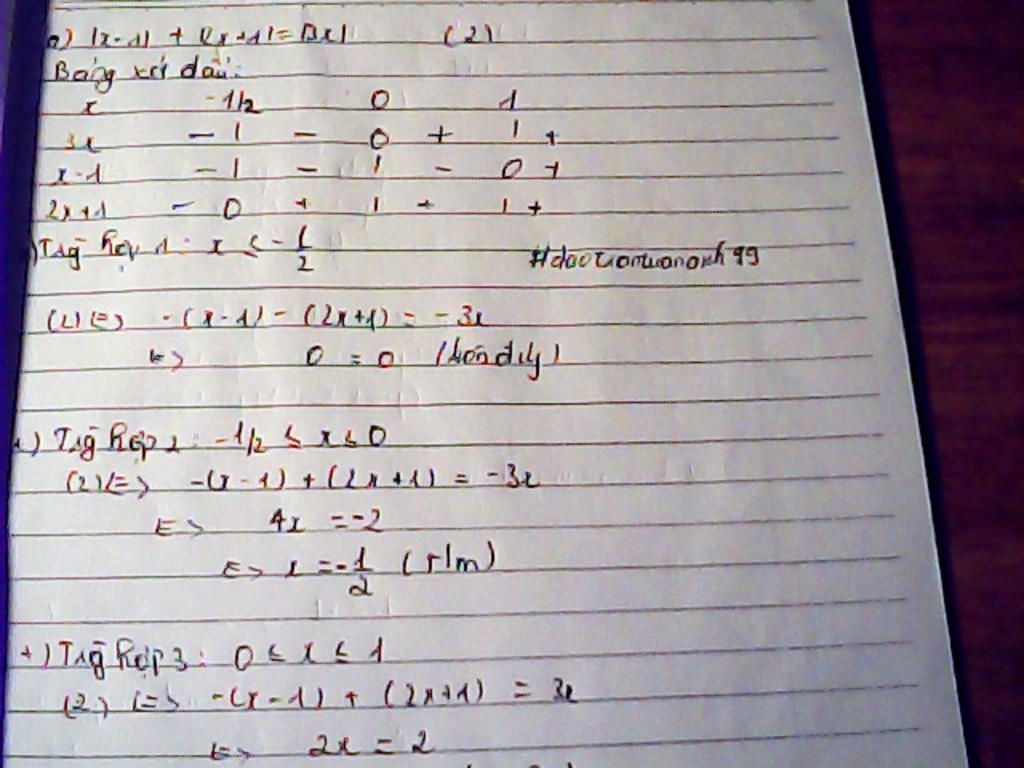 a) |x-1| + |2x+1| = |3x| (2)
Bảng xét dấu:
x -1/2 0 1
3x - | - 0 + | +
x-1 - | - | - 0 +
2x+1 - 0 + | + | +
) Trg hợp 1: x ≤ -1/2
#daotrantuananh99
(2) <=> -(x-1) - (2x+1) = -3x
<=> 0 = 0 (luôn đúng)
+) Trg hợp 2: -1/2 ≤ x ≤ 0
(2) <=> -(x-1) + (2x+1) = -3x
<=> 4x = -2
<=> x = -1/2 (t/m)
+) Trg hợp 3: 0 ≤ x ≤ 1
(2) <=> -(x-1) + (2x+1) = 3x
<=> 2x = 2